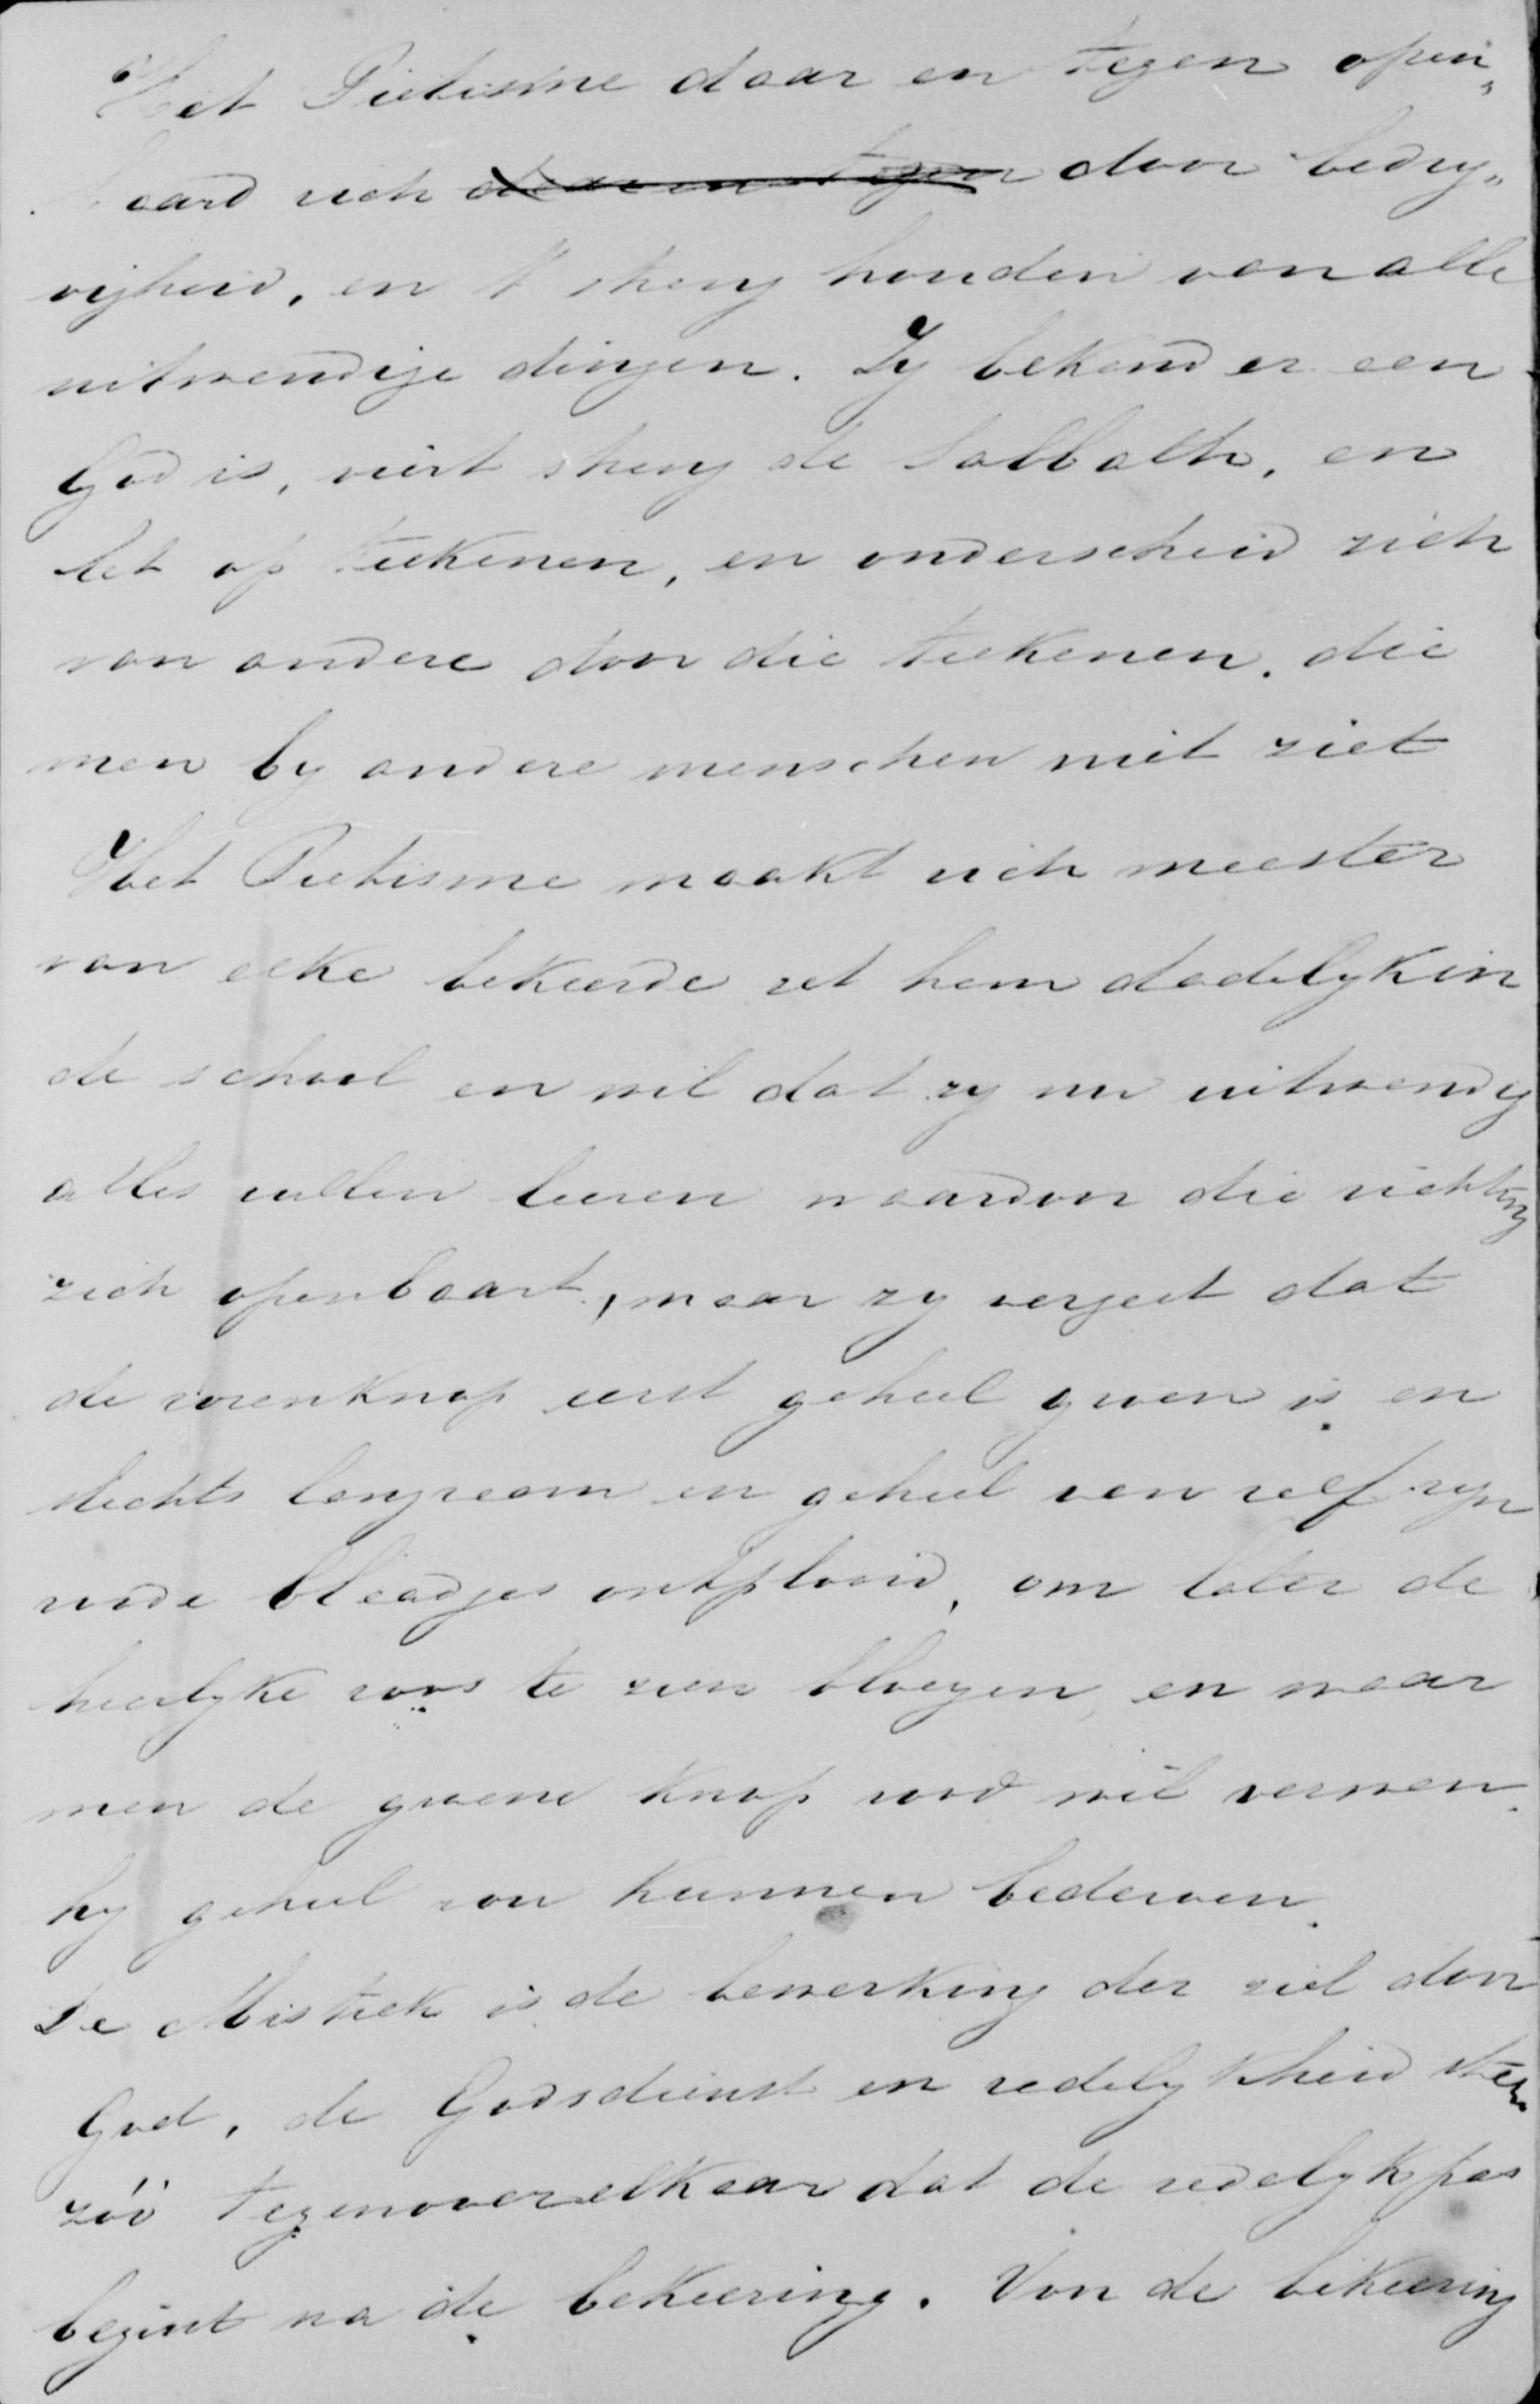 Het Pietisme daar en tegen open„
baard zich daar en tegen door bedry„
vigheid, en 't streng houden van alle
uitwendige dingen. Zy bekend er een
God is, viert streng de Sabbath, en
let op teekenen, en onderscheid zich
van andere door die teekenen. die
men by andere menschen niet ziet
Het Pietisme maakt zich meester
van elke bekeerde zet hem dadelyk in
de school en wil dat zy nu uitwendig
alles zullen leeren waardoor die richting
zich openbaart, maar zy vergeet dat
de rozenknop eerst geheel groen is en
slechts langzaam en geheel van zelf zyn
roode bleadjes ontplooid, om later de
heerlyke roos te zien bloeyen, en waar
men de groene knop rood wil verwen
hy geheel zou kunnen bederven.
De Mistiek is de bewerking der ziel door
God, de Godsdienst en redelykheid staan
zóó tegenover elkaar dat de redelyk pas
begint na de bekeering. Van de bekeering